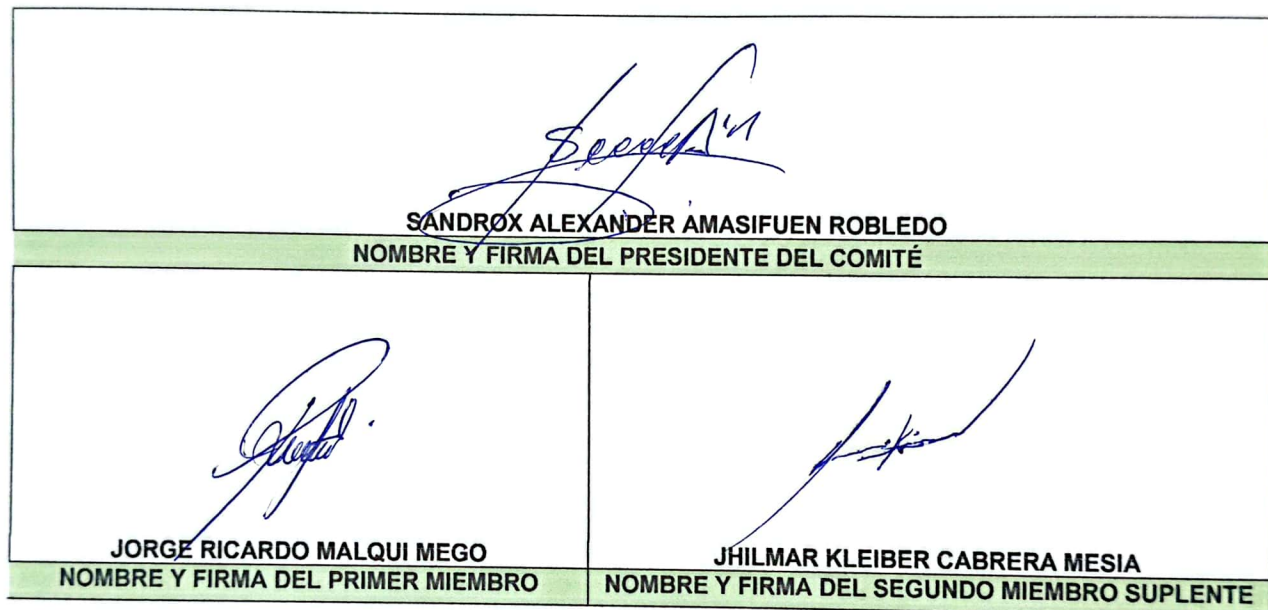 SANDROX ALEXANDER AMASIFUEN ROBLEDO
NOMBRE Y FIRMA DEL PRESIDENTE DEL COMITÉ
JORGE RICARDO MALQUI MEGO
NOMBRE Y FIRMA DEL PRIMER MIEMBRO
JHILMAR KLEIBER CABRERA MESIA
NOMBRE Y FIRMA DEL SEGUNDO MIEMBRO SUPLENTE